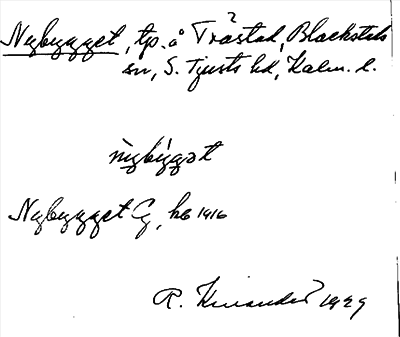 Nybygget, tp. å Tråstad, Blackstads
sn, S. Tjusts hd, Kalm. l.
nỳbýgət
Nybygget Cg, hb 1916
R. Kinander 1929